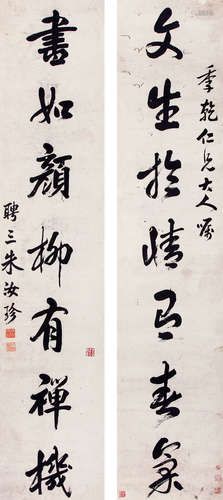 季乾仁兄大人属
文生於情有春气
書如顏柳有禪機
聘三朱汝珍